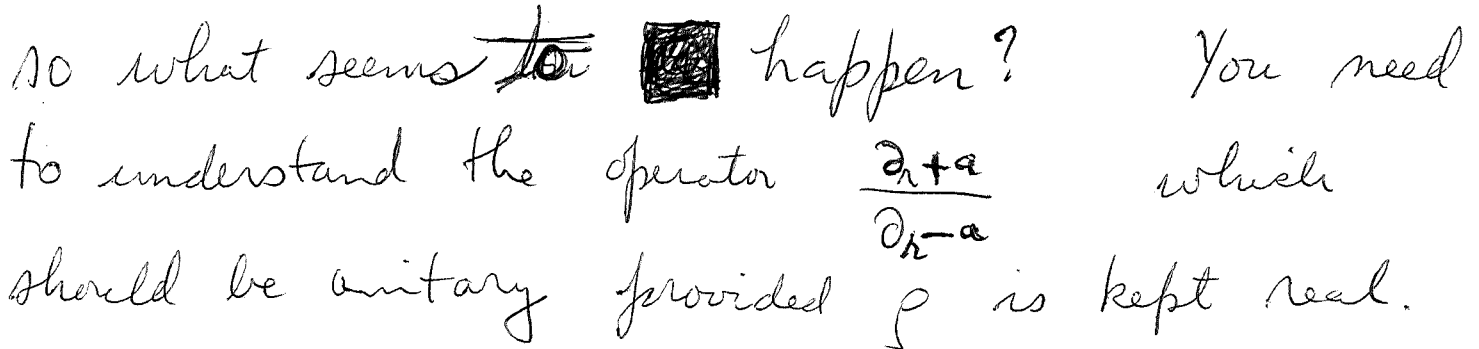 so what seems to happen? You need
to understand the operator $\frac{\partial_r + a}{\partial_r - a}$ which
should be unitary provided ρ is kept real.